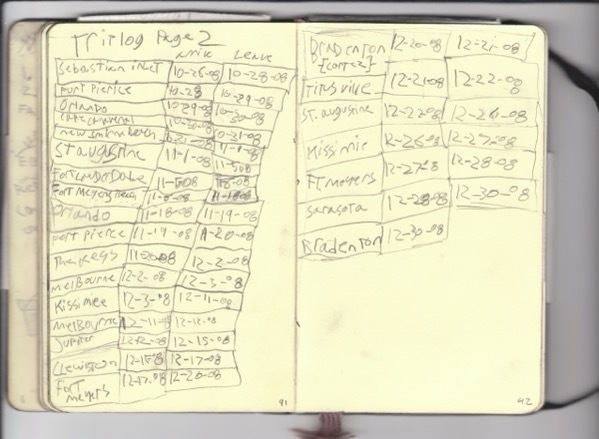 Triplog Page 2
Arrive Leave
Sebastian inlet 10-26-08 10-28-08
Fort Pierce 10-28 10-29-08
Orlando 10-29-08 10-30-08
10-30-08 10-31-08
10-31-08 11-1-08
St augustine 11-1-08 11-5-08
11-5-08
Fort Meyers 11-18-08
Orlando 11-18-08 11-19-08
Fort Pierce 11-19-08 11-20-08
The Keys 11-20-08 12-2-08
Melbourne 12-2-08 12-3-08
Kissimee 12-3-08 12-11-08
Melbourne 12-11-08 12-12-08
Jupiter 12-12-08 12-15-08
Clewiston 12-15-08 12-17-08
Fort 12-17-08 12-20-08
Meyers
91
Bradenton 12-20-08 12-21-08
Titusville 12-21-08 12-22-08
St. augustine 12-22-08 12-26-08
Kissimie 12-26-08 12-27-08
FT. meyers 12-27-08 12-28-08
Sarasota 12-28-08 12-30-08
Bradenton 12-30-08
92